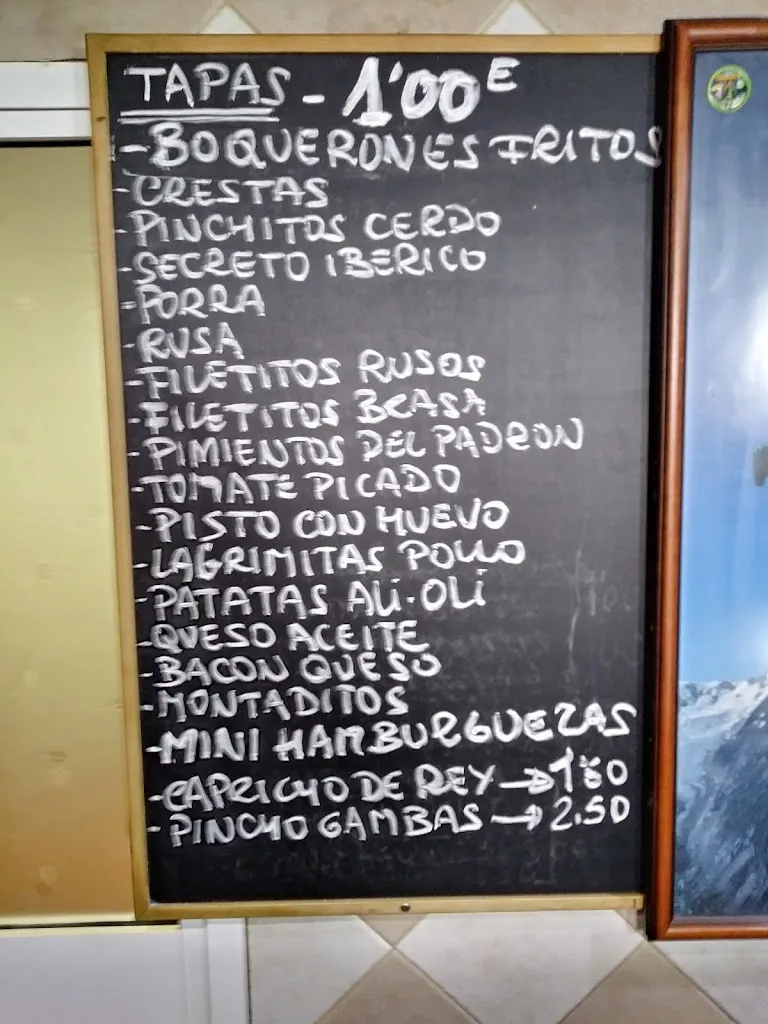 TAPAS - 1'00 E
- BOQUERONES FRITOS
- CRESTAS
- PINCHITOS CERDO
- SECRETO IBERICO
- PORRA
- RUSA
- FILETITOS RUSOS
- FILETITOS BRASA
- PIMIENTOS DEL PADRON
- TOMATE PICADO
- PISTO CON HUEVO
- LAGRIMITAS POLLO
- PATATAS ALI-OLI
- QUESO ACEITE
- BACON QUESO
- MONTADITOS
- MINI HAMBURGUEZAS
- CAPRICHO DE REY → 1'80
- PINCHO GAMBAS → 2.50